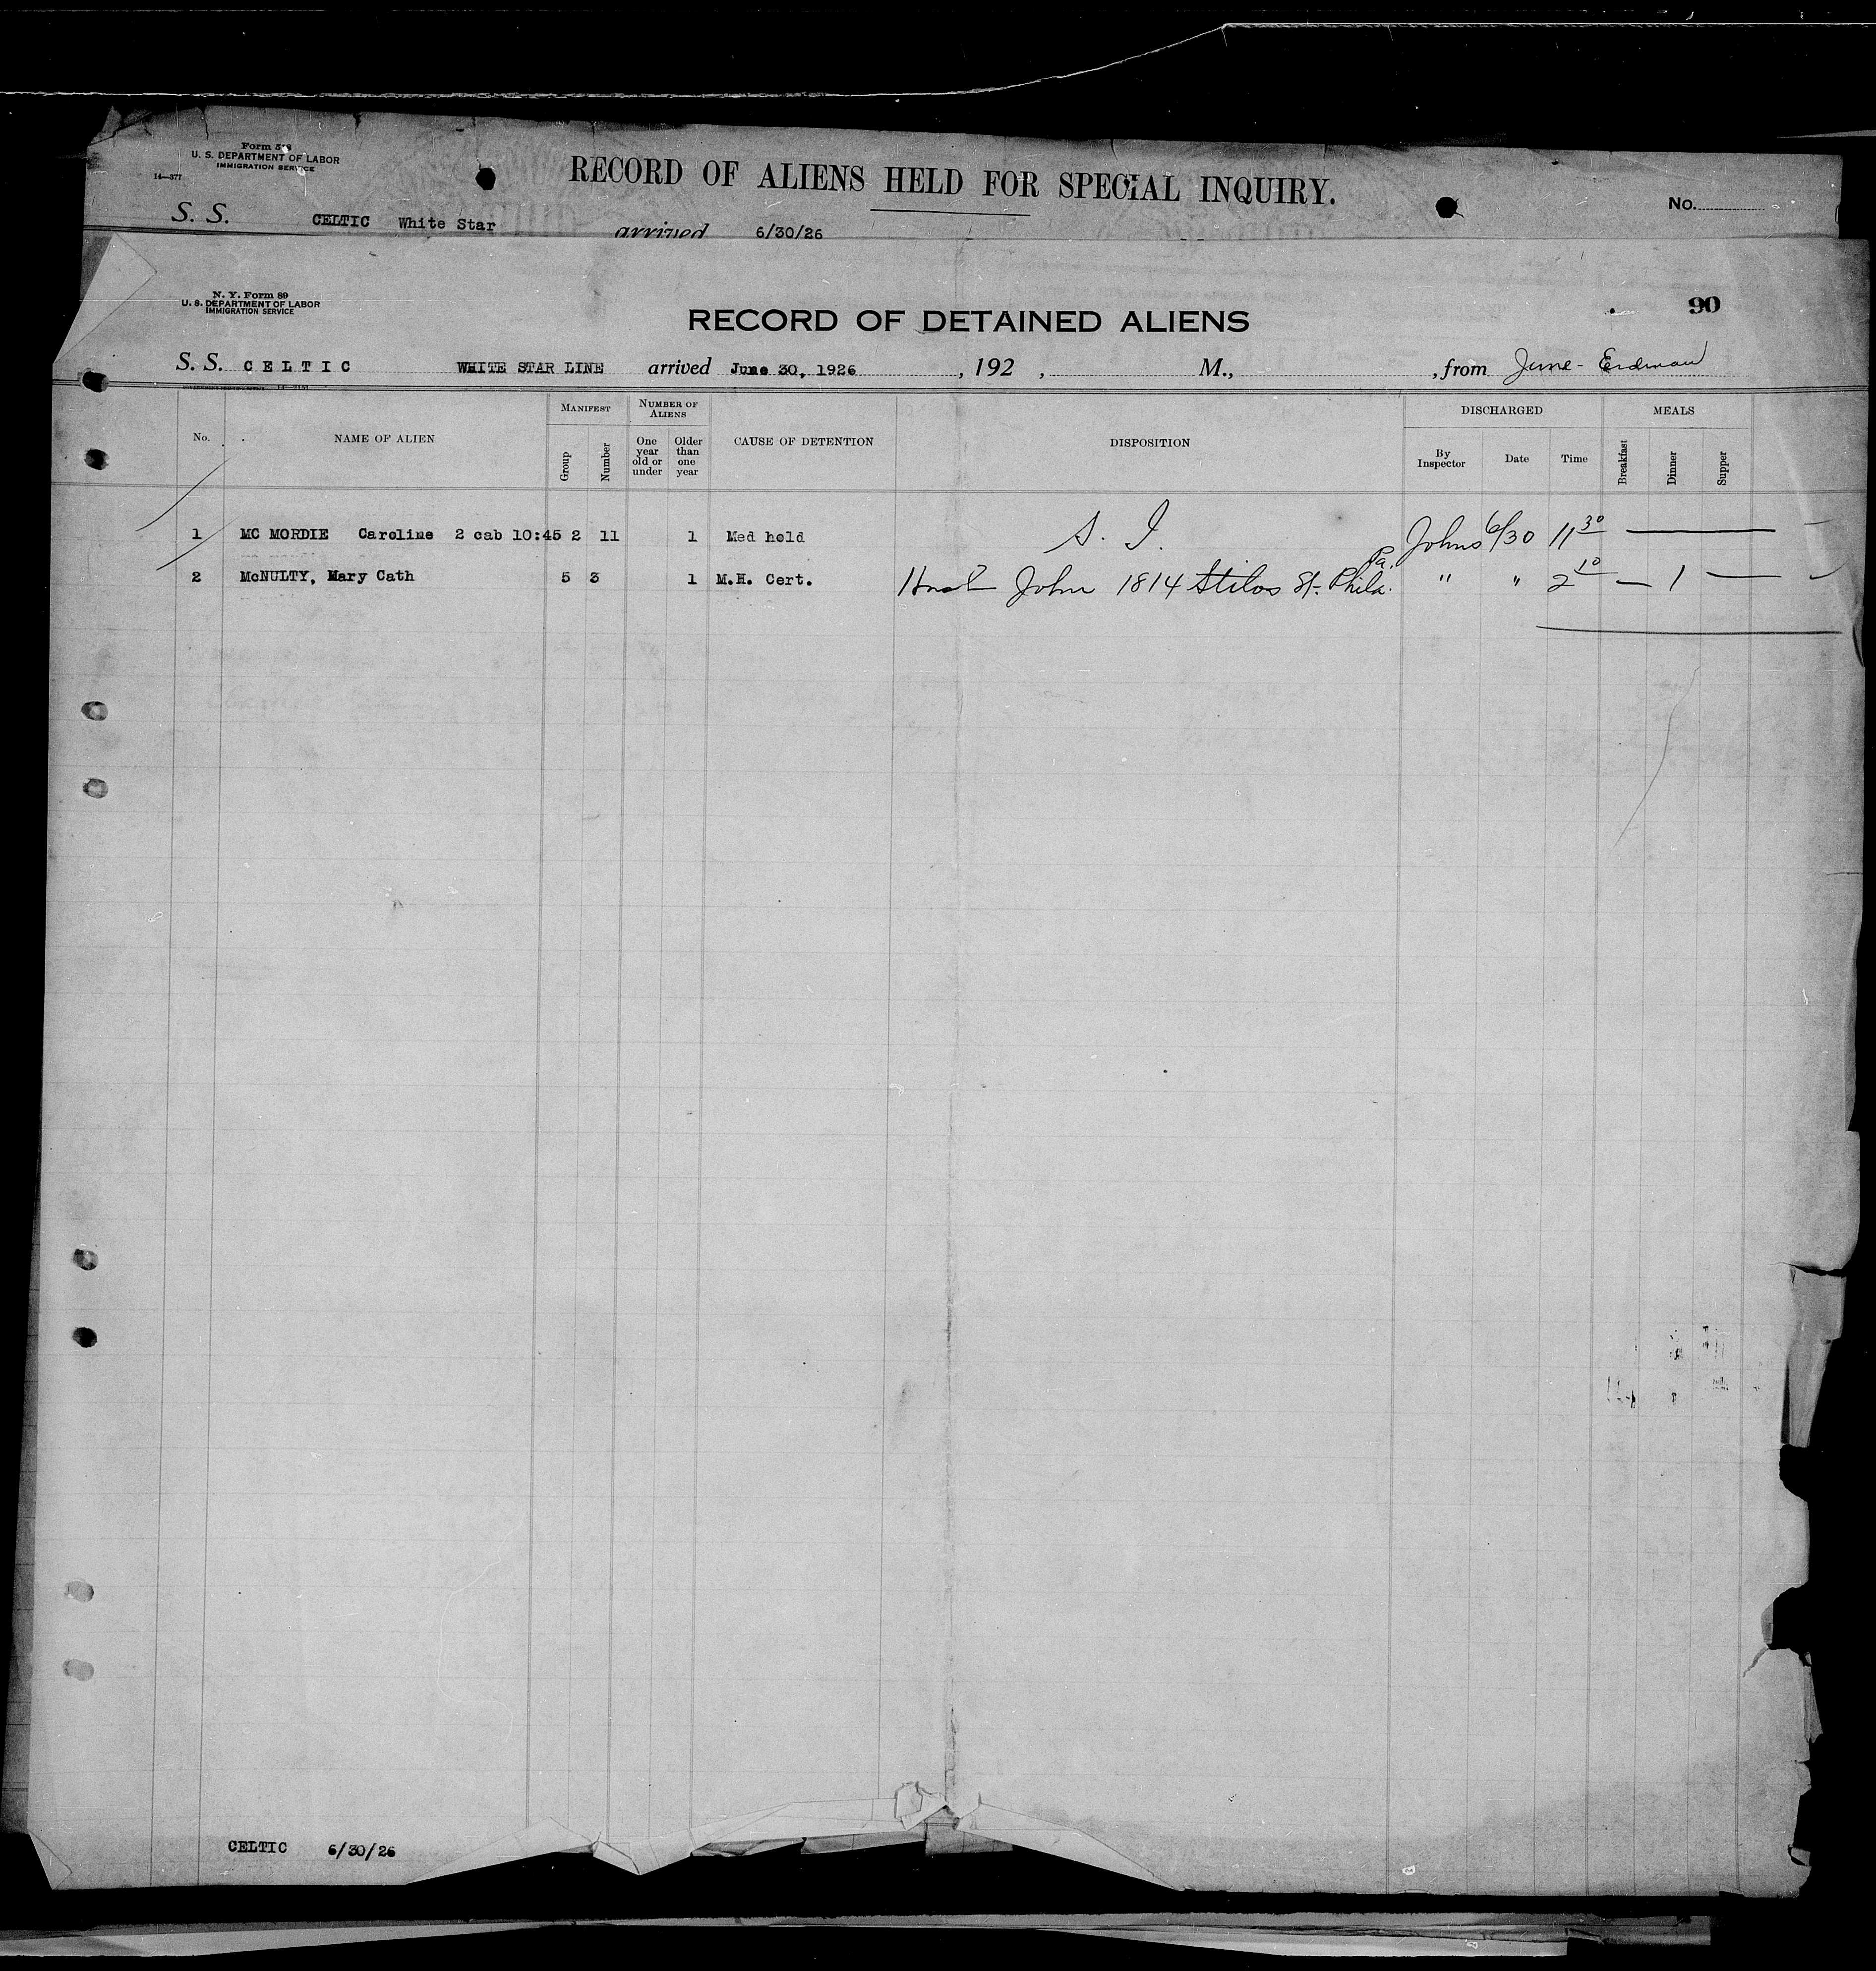 Form 518
U. S. DEPARTMENT OF LABOR
IMMIGRATION SERVICE
14—377
RECORD OF ALIENS HELD FOR SPECIAL INQUIRY.
No.
S. S. CELTIC White Star arrived 6/30/26
N. Y. Form 89
U. S. DEPARTMENT OF LABOR
IMMIGRATION SERVICE
90
RECORD OF DETAINED ALIENS
S. S. CELTIC WHITE STAR LINE arrived June 30, 1926, 192 , M., , from June - Erdman
No. NAME OF ALIEN MANIFEST Group Number NUMBER OF ALIENS One year old or under Older than one year CAUSE OF DETENTION DISPOSITION DISCHARGED By Inspector Date Time MEALS Breakfast Dinner Supper
1 MC MORDIE Caroline 2 cab 10:45 2 11 1 Med hold S. I. Johns 6/30 11 30 —
2 McNULTY, Mary Cath 5 3 1 M.H. Cert. Husb John 1814 Stiles St. Phila. Pa. " " 2 10 — 1 —
CELTIC 6/30/26